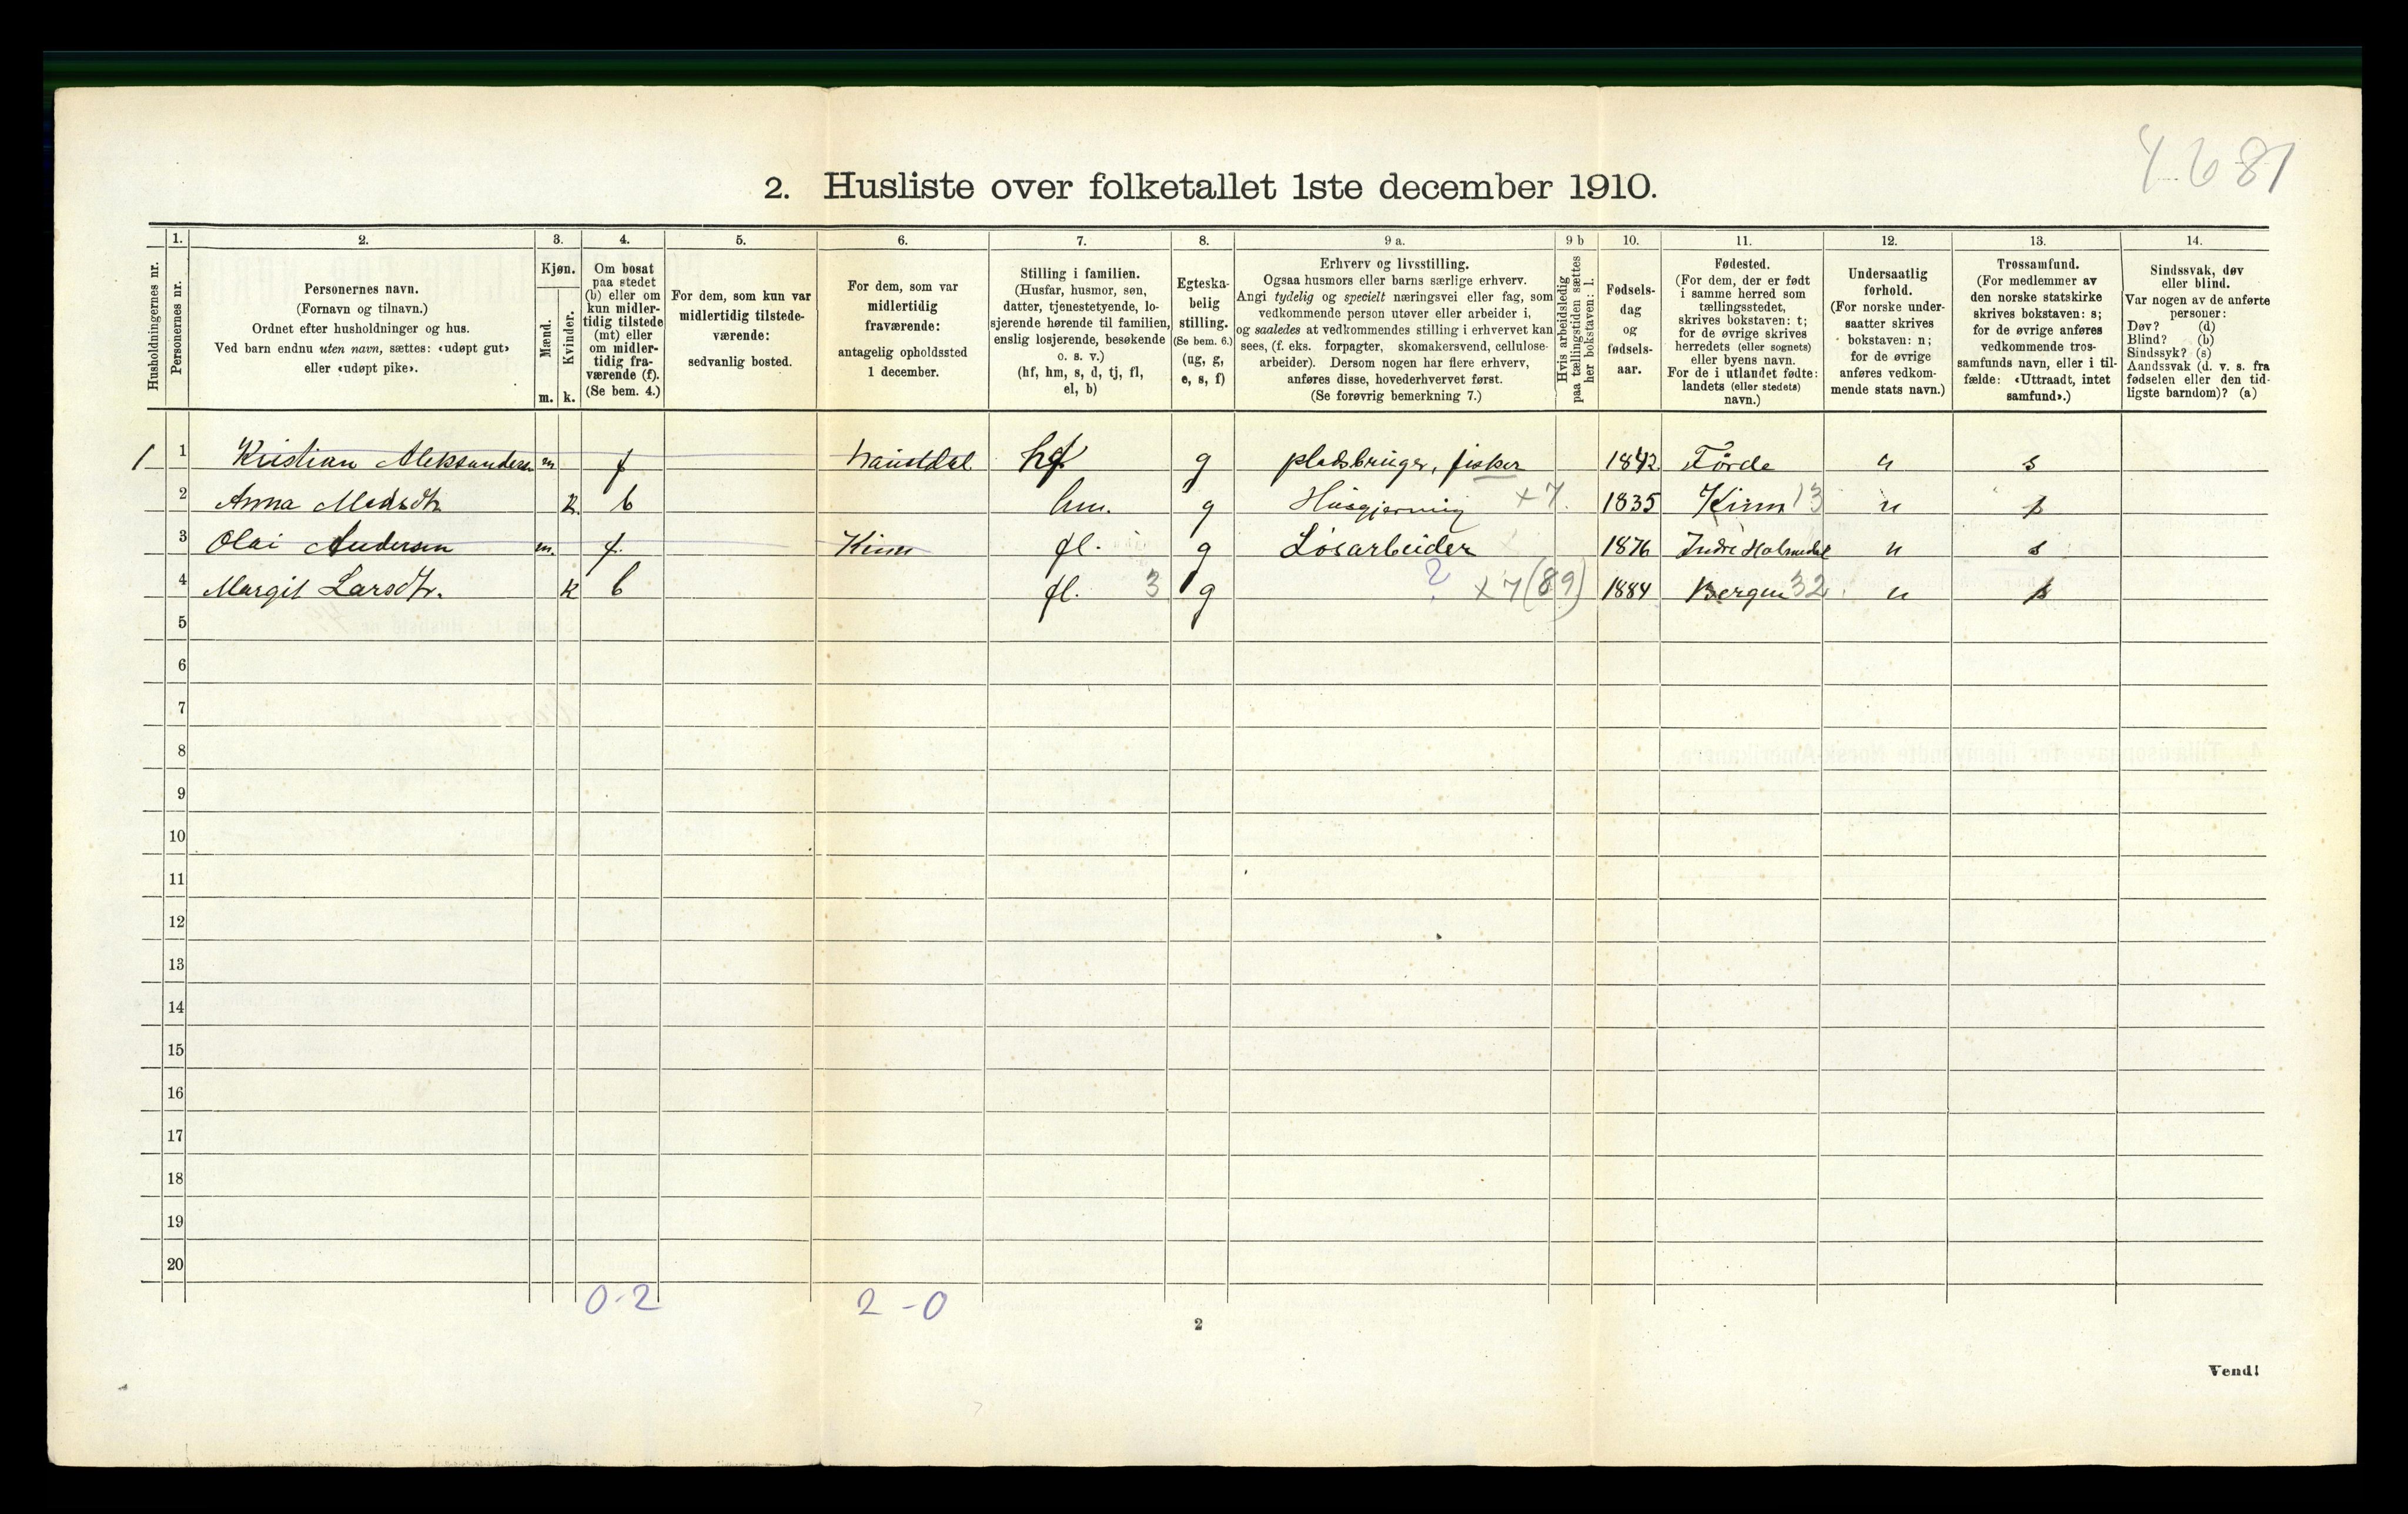 4681
2. Husliste over folketallet 1ste december 1910.
Husholdningernes nr.
1.
Personernes nr.
2.
Personernes navn.
(Fornavn og tilnavn.)
Ordnet efter husholdninger og hus.
Ved barn endnu uten navn, sættes: «udøpt gut»
eller «udøpt pike».
3.
Kjøn.
Mænd.
Kvinder.
m. k.
4.
Om bosat
paa stedet
(b) eller om
kun midler-
tidig tilstede
(mt) eller
om midler-
tidig fra-
værende (f).
(Se bem. 4.)
5.
For dem, som kun var
midlertidig tilstede-
værende:
sedvanlig bosted.
6.
For dem, som var
midlertidig
fraværende:
antagelig opholdssted
1 december.
7.
Stilling i familien.
(Husfar, husmor, søn,
datter, tjenestetyende, lo-
sjerende hørende til familien,
enslig losjerende, besøkende
o. s. v.)
(hf, hm, s, d, tj, fl,
el, b)
8.
Egteska-
belig
stilling.
(Se bem. 6.)
(ug, g,
e, s, f)
9 a.
Erhverv og livsstilling.
Ogsaa husmors eller barns særlige erhverv.
Angi tydelig og specielt næringsvei eller fag, som
vedkommende person utøver eller arbeider i,
og saaledes at vedkommendes stilling i erhvervet kan
sees, (f. eks. forpagter, skomakersvend, cellulose-
arbeider). Dersom nogen har flere erhverv,
anføres disse, hovederhvervet først.
(Se forøvrig bemerkning 7.)
9 b
Hvis arbeidsledig
paa tællingstiden sættes
her bokstaven: l.
10.
Fødsels-
dag
og
fødsels-
aar.
11.
Fødested.
(For dem, der er født
i samme herred som
tællingsstedet,
skrives bokstaven: t;
for de øvrige skrives
herredets (eller sognets)
eller byens navn.
For de i utlandet fødte:
landets (eller stedets)
navn.)
12.
Undersaatlig
forhold.
(For norske under-
saatter skrives
bokstaven: n;
for de øvrige
anføres vedkom-
mende stats navn.)
13.
Trossamfund.
(For medlemmer av
den norske statskirke
skrives bokstaven: s;
for de øvrige anføres
vedkommende tros-
samfunds navn, eller i til-
fælde: «Uttraadt, intet
samfund».)
14.
Sindssvak, døv
eller blind.
Var nogen av de anførte
personer:
Døv? (d)
Blind? (b)
Sindssyk? (s)
Aandssvak (d. v. s. fra
fødselen eller den tid-
ligste barndom)? (a)
1 1 Kristian Aleksandersen m f Naustdal hf g pladsbruger, fisker 1842 Førde n s
2 Anna Madsdtr k. b hm. g Husgjerning x 7 1835 Kinn 13 n s
3 Olai Andersen m. f. Kinn fl. g Løsarbeider 1876 Indre Holmedal n s
4 Margit Larsdtr. k b fl. 3 g ? x 7 (89) 1884 Bergen 32 n s
5
6
7
8
9
10
11
12
13
14
15
16
17
18
19
20
0-2 2-0
2
Vend!